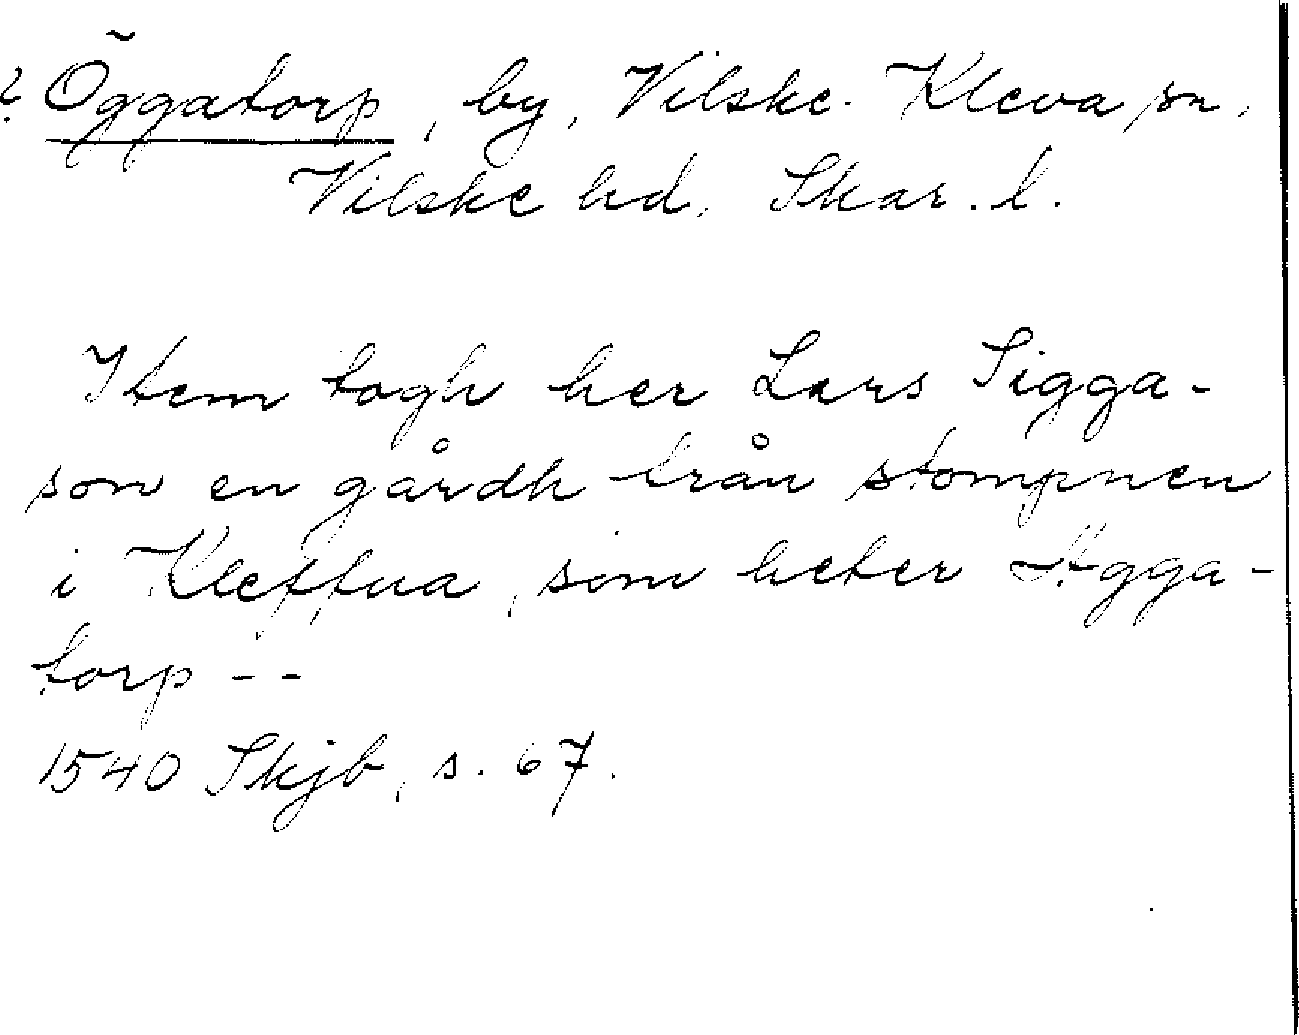 ? Öggatorp, by, Vilske-Kleva sn,
Vilske hd, Skar. l.
Item togh her Lars Sigga-
son en gårdh från stompnen
i Kleffua, som heter Ägga-
torp --
1540 Skjb, s. 67.